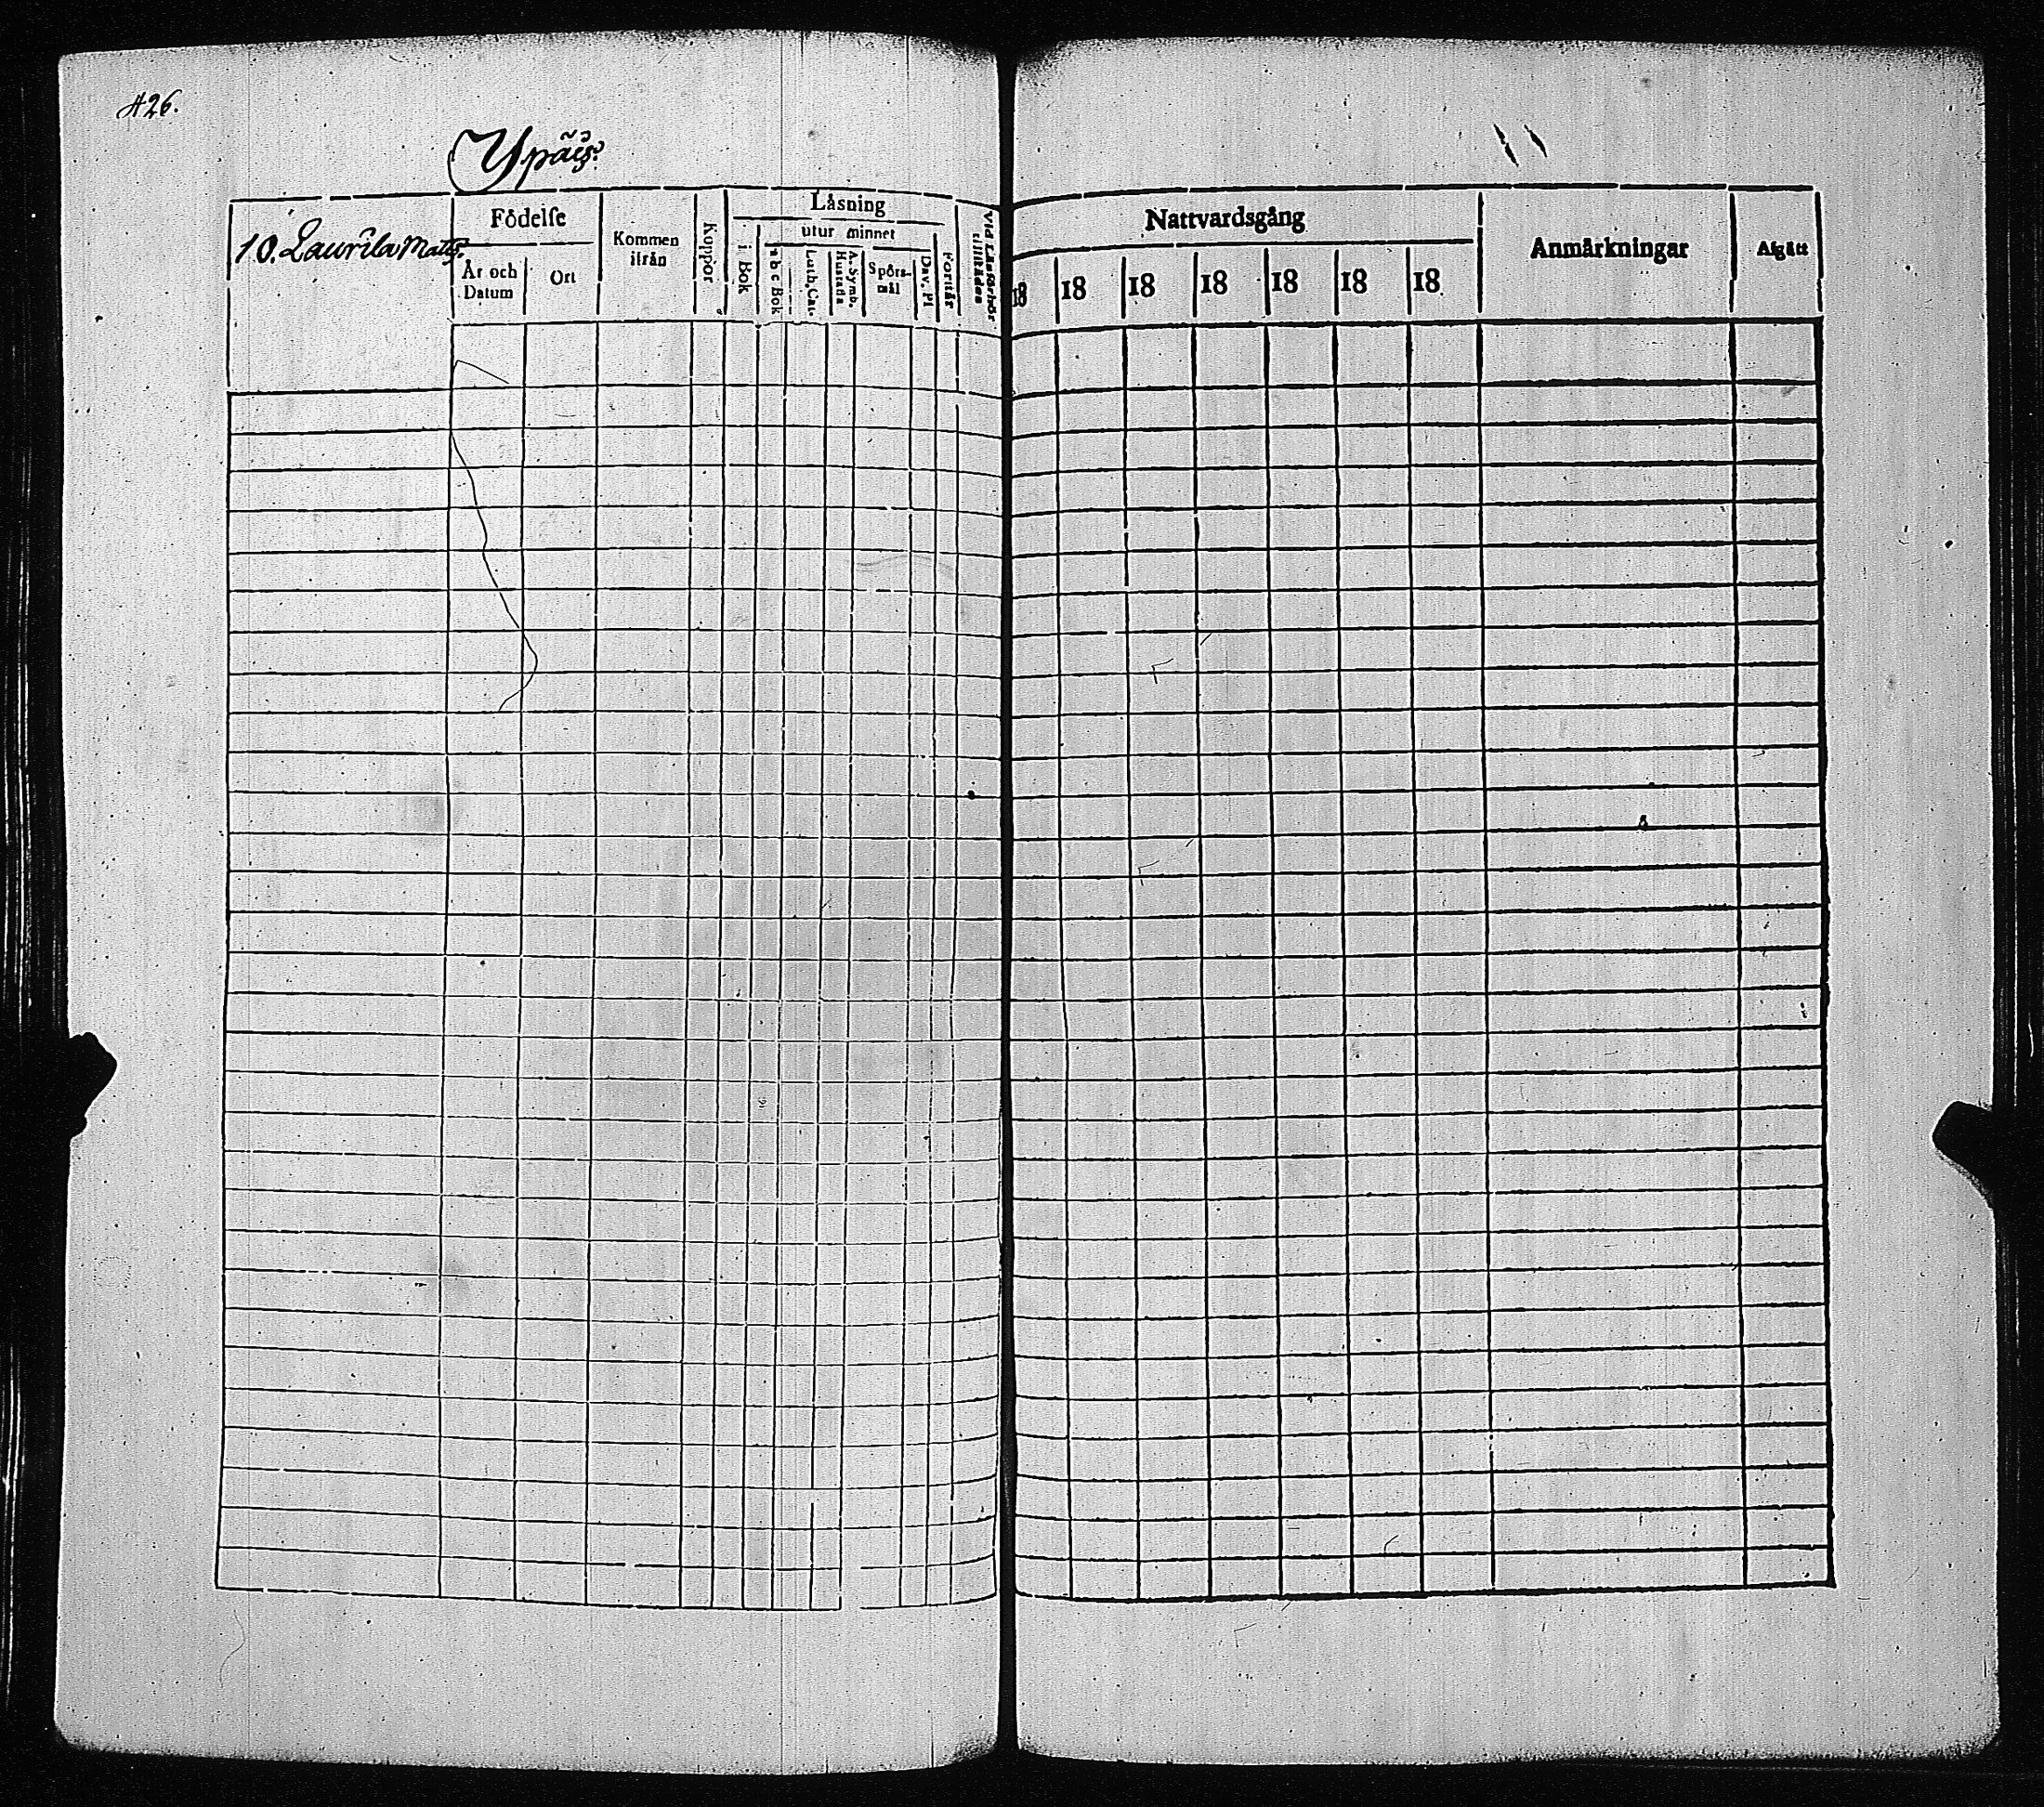 426.
Ypäis.
10. Laurila Matts.
Födelse
År och Datum
Ort
Kommen ifrån
Koppor
Läsning
i Bok
utur minnet
a b c Bok
Luth. Cat.
A. Symb. Hustafla
Spörsmål
Dav. Ps
Förstår
Vid Läsförhör tillstädes
Nattvardsgång
18 18 18 18 18 18 18
Anmärkningar
Afgått